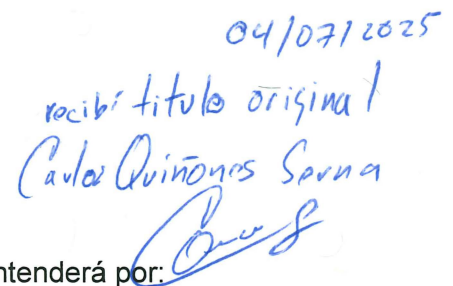 04/07/2025
recibí titulo original
Carlos Quiñones Serna
ntenderá por: